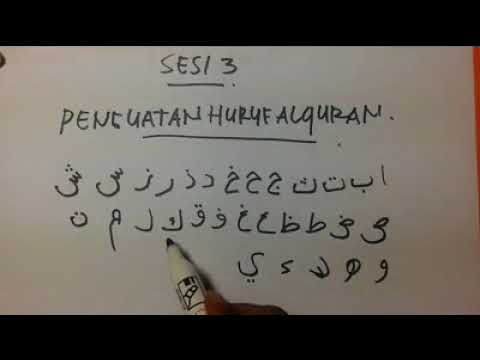 SESI 3
PENGUATAN HURUF ALQURAN.
ا ب ت ث ج ح خ د ذ ر ز س ش
ص ض ط ظ ع غ ف ق ك ل م ن
و ه لا ء ي